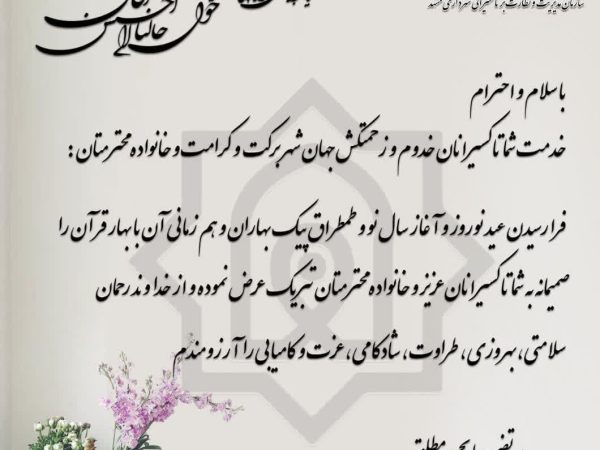 سازمان مدیریت و نظارت بر تاکسیرانی شهرداری مشهد
حول حالنا الی احسن الحال
با سلام و احترام
خدمت شما تاکسیرانان خدوم و زحمتکش جهان شهر برکت و کرامت و خانواده محترمتان :
فرا رسیدن عید نوروز و آغاز سال نو و طمطراق پیک بهاران و هم زمانی آن با بهار قرآن را
صمیمانه به شما تاکسیرانان عزیز و خانواده محترمتان تبریک عرض نموده و از خداوند رحمان
سلامتی، بهروزی، طراوت، شادکامی، عزت و کامیابی را آرزومندم